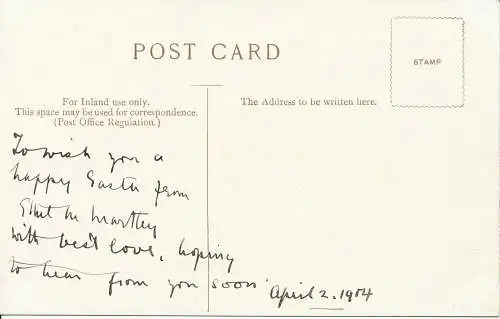 POST CARD
STAMP
For Inland use only.
This space may be used for correspondence.
(Post Office Regulation.)
The Address to be written here.
To wish you a
happy Easter from
M Martley
with best love, hoping
to hear from you soon
April 2. 1904